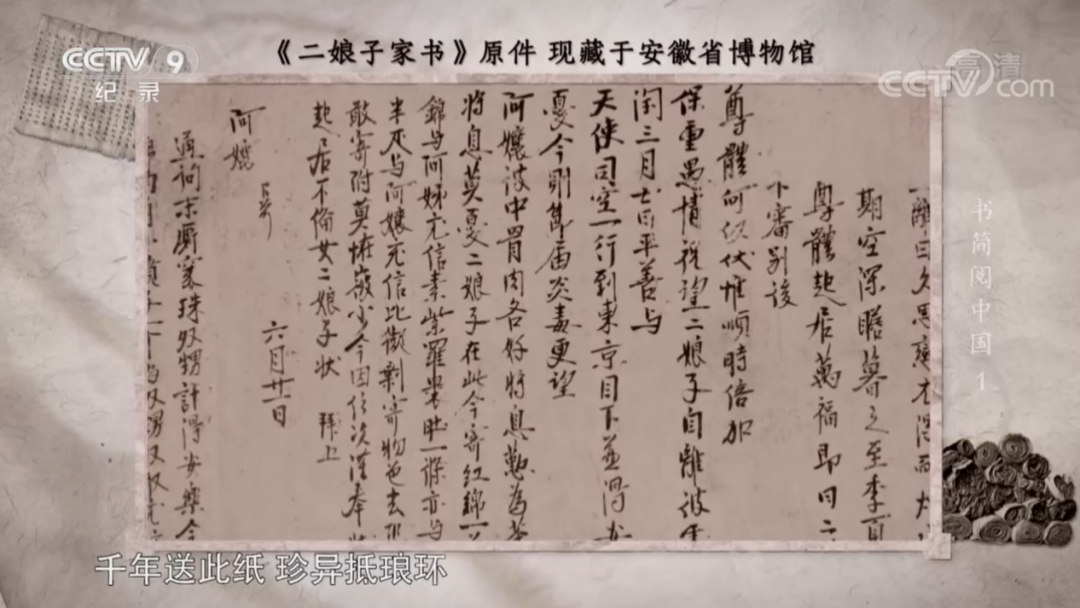 CCTV 9
纪录
《二娘子家书》原件 现藏于安徽省博物馆
高清
CCTV.com
书简阅中国 1
离日久思
期空深瞻暮之至季夏
尊體起居萬福即日二
下審别後
尊體何似伏惟順時倍加
保重愚情祝望二娘子自離彼
閏三月七日平善与
天使司空一行到東京目下並得
憂今則節届炎毒更望
阿孃彼中骨肉各好将息勤為
将息莫憂二娘子在此今寄紅錦一
錦与阿姊充信素紫羅裹肚一條亦与
半疋与阿孃充信比擬剩寄物色去
敢寄附莫怪微少今因信次謹奉
起居不俻女二娘子状 拜上
阿孃
六月廿一日
通詞末厮裹珠奴甥計得安樂今
千年送此纸 珍异抵琅环